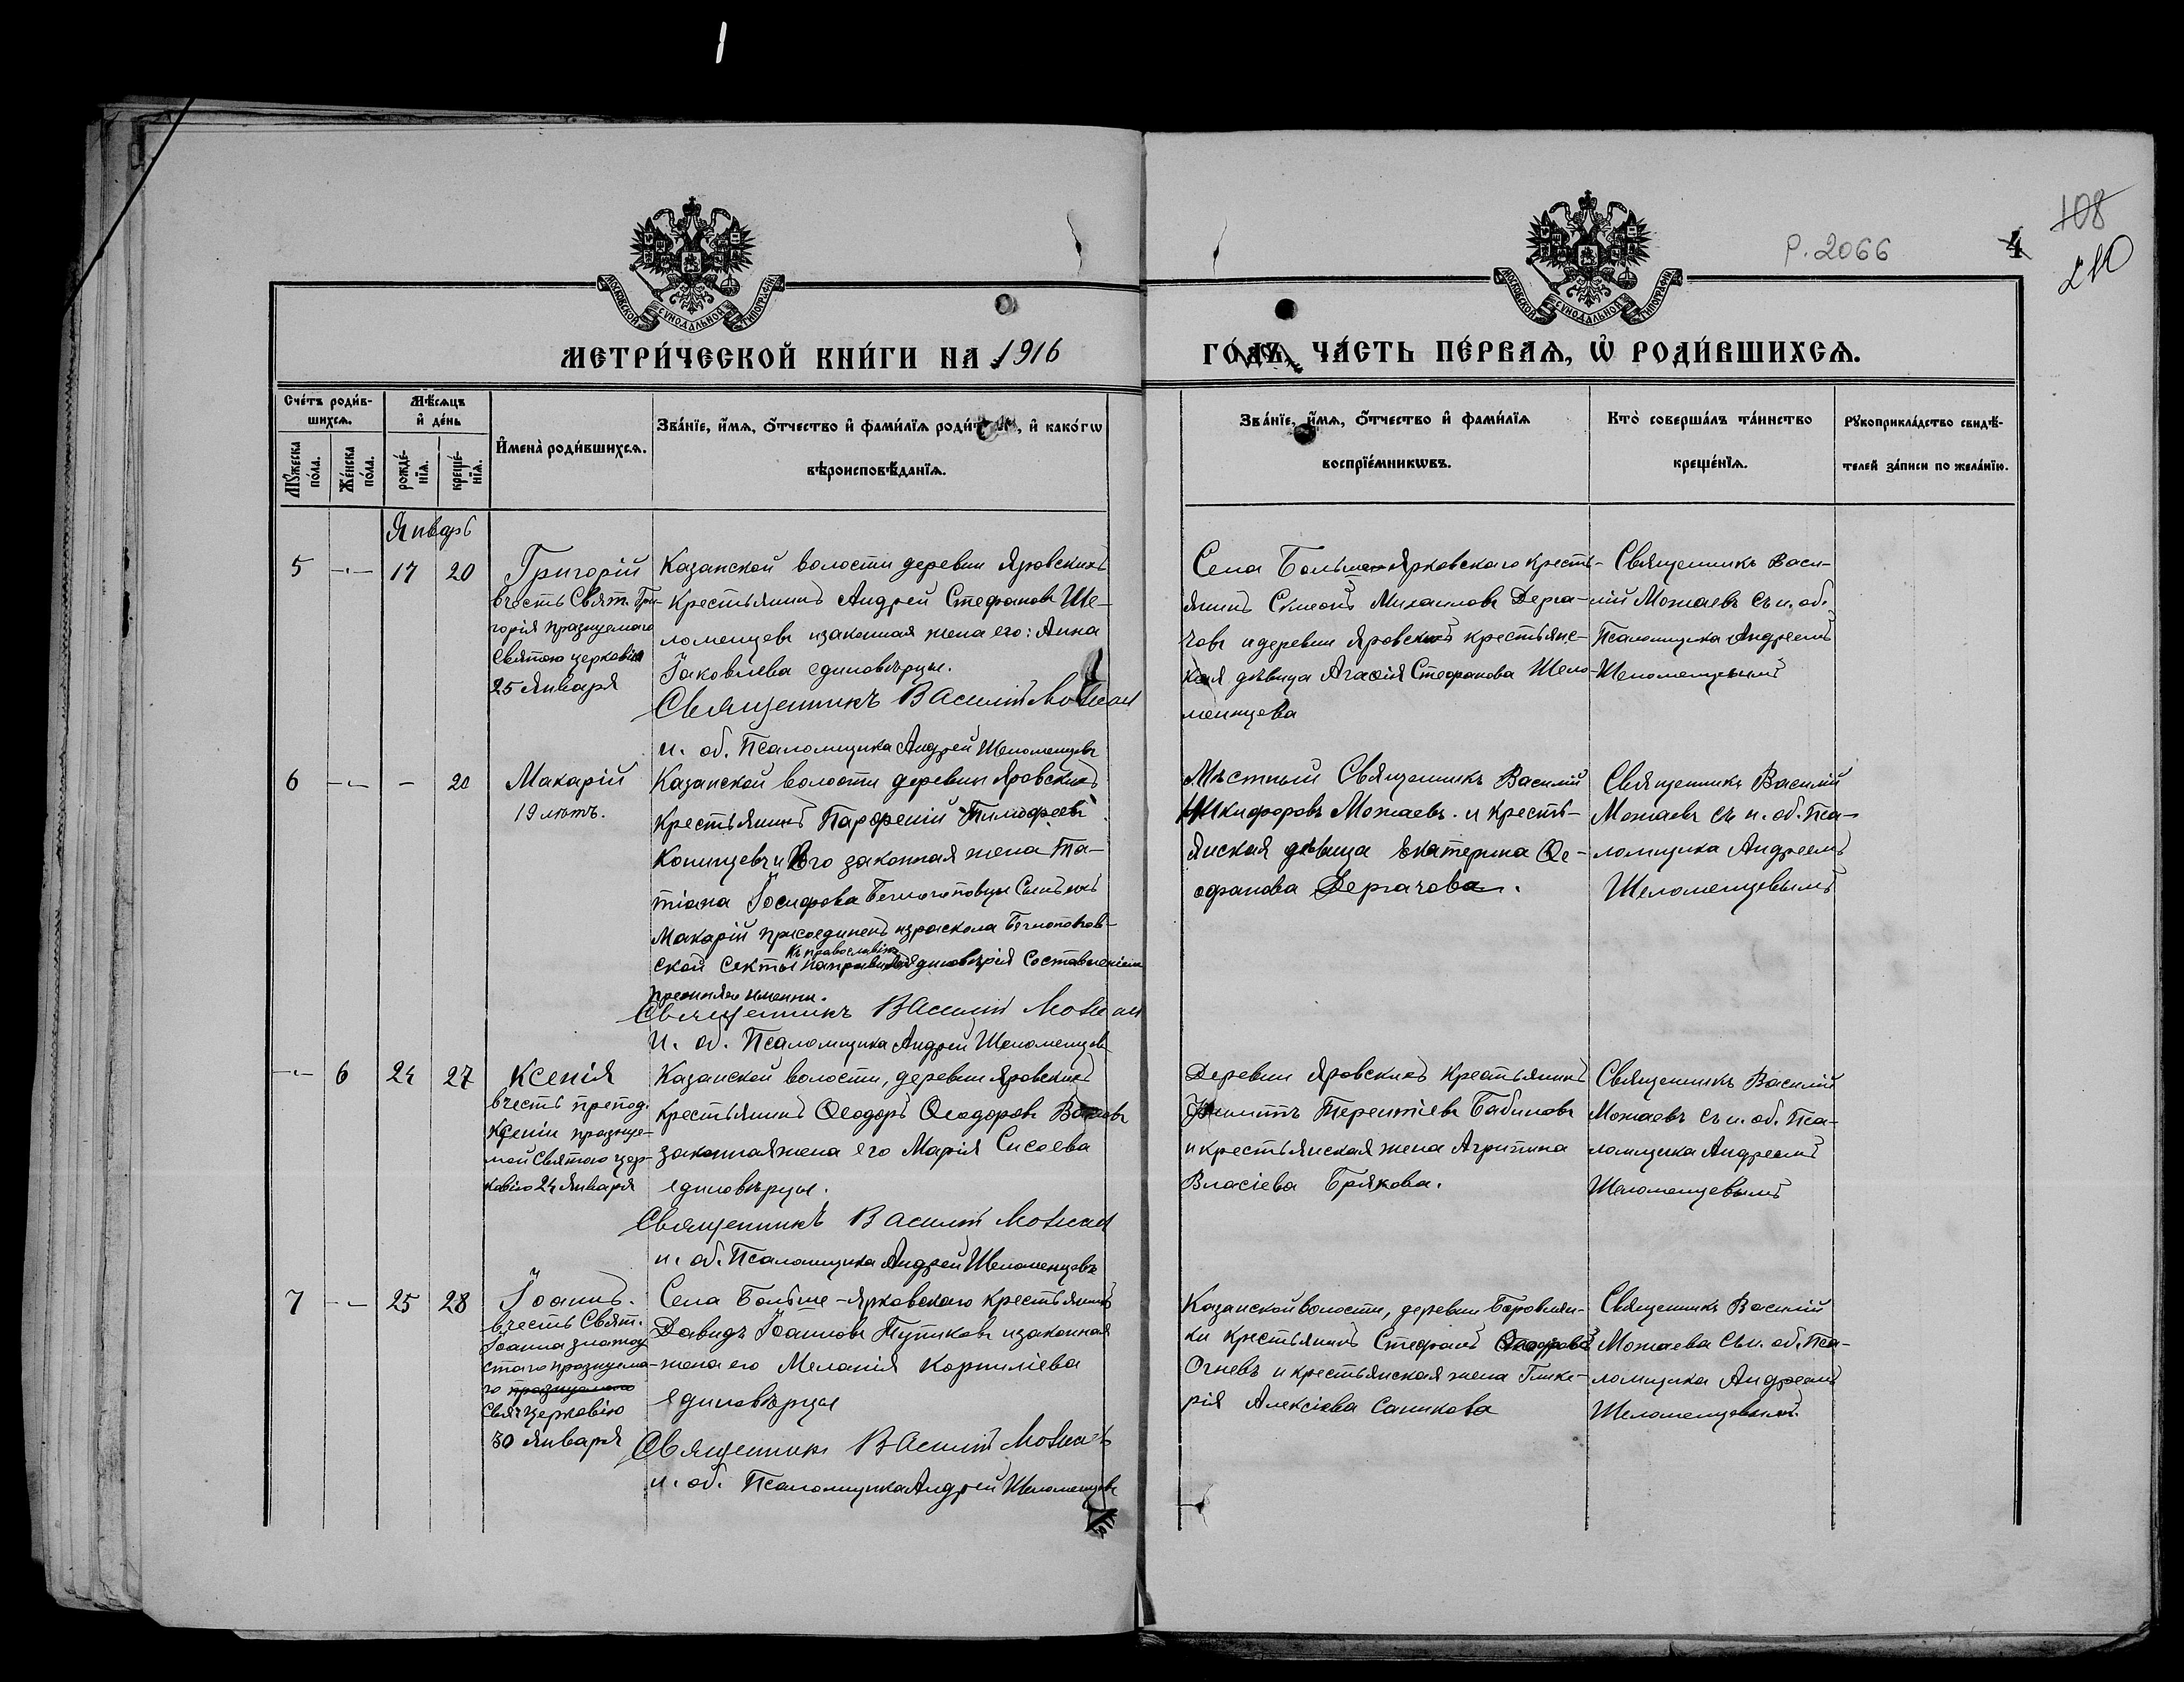 Р. 2066
4
108
210
МОСКОВСКОЙ СѴНОДАЛЬНОЙ ТИПОГРАФІИ
МОСКОВСКОЙ СѴНОДАЛЬНОЙ ТИПОГРАФІИ
МЕТРИ́ЧЕСКОЙ КНИ́ГИ НА 1916
ГО́ДЪ, ЧА́СТЬ ПЕ́РВАѦ, Ѡ҆ РОДИ́ВШИХСѦ.
Сче́тъ роди́в-
шихсѧ.
Мꙋ́жеска по́ла.
Же́нска по́ла.
Мѣ́сѧцъ
и҆ де́нь
рожде́-
нїѧ.
креще́-
нїѧ.
И҆мена̀ роди́вшихсѧ.
Зва́нїе, и҆́мѧ, ѻ҆́тчество и҆ фами́лїѧ роди́телей, и҆ како́гѡ
вѣроисповѣ́данїѧ.
Зва́нїе, и҆́мѧ, ѻ҆́тчество и҆ фами́лїѧ
воспрїе́мникѡвъ.
Кто̀ соверша́лъ та́инство
креще́нїѧ.
Рꙋкоприкла́дство свидѣ́-
телей за́писи по жела́нїю.
Январь
5 -"- 17 20
Григорій
вчесть Свят. Гри-
горія празнуемаго
Святою церковію
25 Января
Казанской волости деревни Яровскихъ
крестьянинъ Андрей Стефановъ Ше-
ломенцевъ и законная жена его: Анна
Іаковлева единовѣрцы.
Священникъ Василій Можаев
и. об. Псаломщика Андрей Шеломенцевъ
Села Больше-Ярковскаго кресть-
янинъ Симеонъ Михаиловъ Дерга-
човъ и деревни Яровскихъ крестьянс-
кая дѣвица Агафія Стефанова Шело-
менцева
Священникъ Васи-
лій Можаевъ съ и. об.
Псаломщика Андреемъ
Шеломенцевымъ
6 -"- - 20
Макарій
19 лѣтъ.
Казанской волости деревни Яровскихъ
крестьянинъ Парфеній Тимофеевъ
Конищевъ и Его законная жена Та-
тіана Іосифова Беглопоповцы Сынъ ихъ
Макарій присоединенъ изъ раскола Беглопопов-
къ православію
ской секты на правилахъ единовѣрія Съоставленіемъ
прежняго имени.
Священникъ Василій Можаев
И. об. Псаломщика Андрей Шеломенцевъ
Мѣстный Священникъ Василій
Никифоровъ Можаевъ. и кресть-
янская дѣвица Екатерина Ѳе-
офанова Дергачова.
Священникъ Василій
Можаевъ съ и. об. Пса-
ломщика Андреемъ
Шеломенцевымъ
-"- 6 24 27
Ксенія
вчесть препод.
Ксеніи празнуе-
мой Святою цер-
ковію 24 Января
Казанской волости, деревни Яровскихъ
крестьянинъ Ѳеодоръ Ѳеодоровъ
законная жена его Марія Сисоева
единовѣрцы.
Священникъ Василій Можаев
и. об. Псаломщика Андрей Шеломенцевъ
Деревни Яровскихъ крестьянинъ
Терентіевъ Бабиновъ
и крестьянская жена Агрипина
Власіева Брякова.
Священникъ Василій
Можаевъ съ и. об. Пса-
ломщика Андреемъ
Шеломенцевымъ
7 -"- 25 28
Іоаннъ.
вчесть Свят.
Іоанна златоу
стаго празнуема-
го празнуемаго
Свят церковію
30 Января
Села Больше-Ярковскаго крестьянинъ
Давидъ Іоанновъ Путиковъ и законная
жена его Меланія Корниліева
единовѣрцы
Священникъ Василій Можаевъ
и. об. Псаломщика Андрей Шеломенцевъ
Казанской волости, деревни Боровлян-
ки крестьянинъ Стефанъ Ѳеодоровъ
Огневъ и крестьянская жена Глике-
рія Алексіева Саникова
Священникъ Василій
Можаевъ съ и. об. Пса-
ломщика Андреемъ
Шеломенцевымъ.